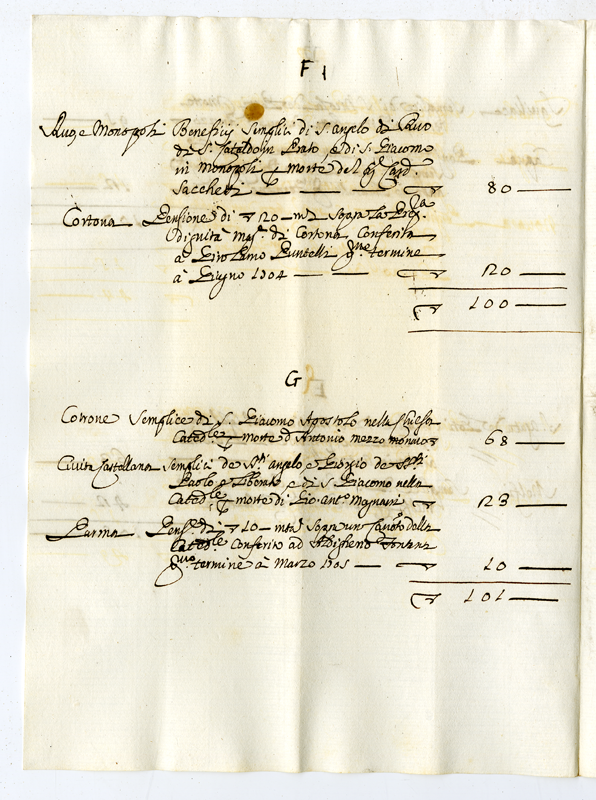 F
Ruvo, e Monopoli Beneficij Semplici di S. Angelo di Ruvo
di S. Cataldo in Prato e di S. Giacomo
in Monopoli p morte del Sig.r Card.
Sacchetti — — — 80 —
Cortona Pensione di 20 — m.ta Sopra la Pr.a
dignità mag.e di Cortona Conferita
a Girolamo Puntelli termine
à Giugno 1704 — — 20 —
100 —
G
Cotrone Semplice di S. Giacomo Apostolo nella Chiesa
Catedle p morte d'Antonio mezzo monaco 68 —
Civita Castellana Semplici de SS.ti Angelo e Giorgio de SS.ti
Paolo e Liberato, e di S. Giacomo nella
Catedle p morte di Gio: Ant.o Magnani 23 —
Parma Pens.e di 10 — m.ta Sopra un Canonicato della
Catedle Conferito ad
termine à Marzo 1705 — 10 —
101 —